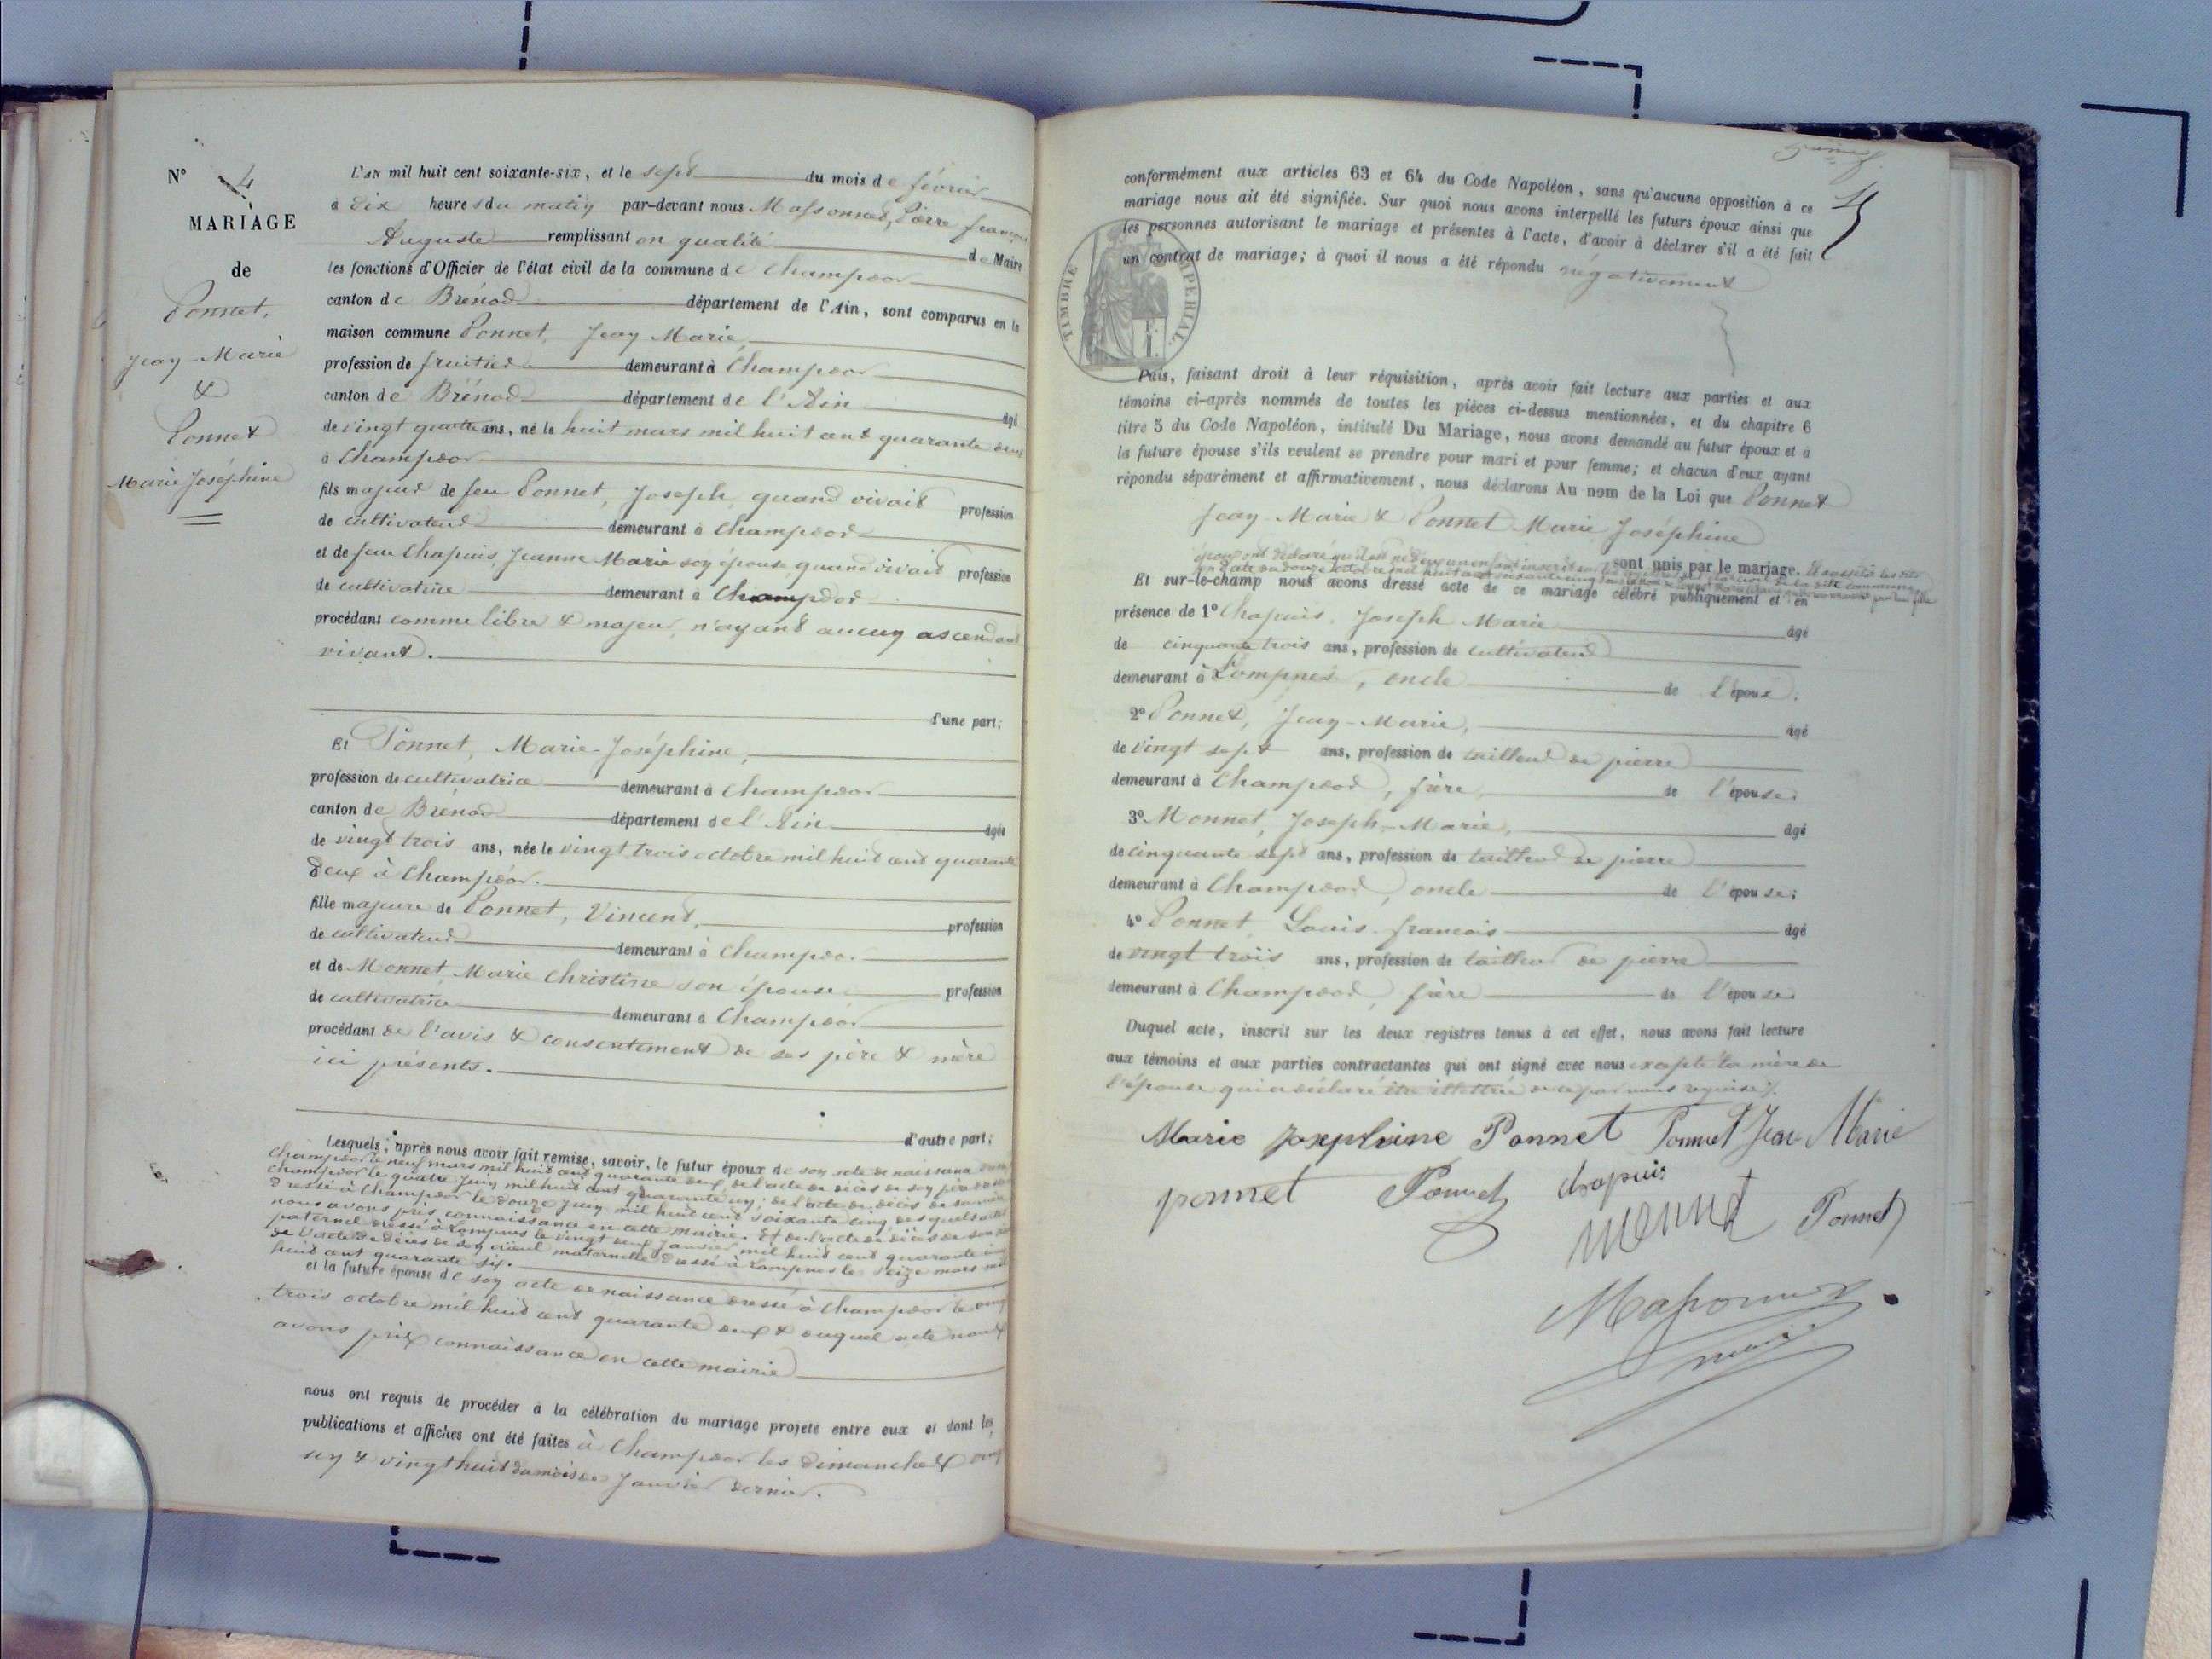 N° 4
MARIAGE
de
Ponnet,
Jean-Marie
&
Ponnet
Marie Joséphine
L'AN mil huit cent soixante-six, et le sept du mois de février
à dix heures du matin par-devant nous Massonnet, Pierre françois
Auguste remplissant en qualité de Maire
les fonctions d'Officier de l'état civil de la commune de Champdor
canton de Brénod département de l'Ain, sont comparus en la
maison commune Ponnet, Jean Marie,
profession de fruitier demeurant à Champdor
canton de Brénod département de l'Ain âgé
de vingt quatre ans, né le huit mars mil huit cent quarante deux
à Champdor
fils majeur de feu Ponnet, Joseph, quand vivait profession
de cultivateur demeurant à Champdor
et de feue Chapuis, Jeanne Marie son épouse, quand vivait profession
de cultivatrice demeurant à Champdor
procédant comme libre & majeur, n'ayant aucun ascendant
vivant.
d'une part;
Et Ponnet, Marie-Joséphine,
profession de cultivatrice demeurant à Champdor
canton de Brénod département de l'Ain âgée
de vingt trois ans, née le vingt trois octobre mil huit cent quarante
deux à Champdor.
fille majeure de Ponnet, Vincent, profession
de cultivateur demeurant à Champdor
et de Monnet, Marie Christine son épouse profession
de cultivatrice demeurant à Champdor
procédant de l'avis & consentement de ses père & mère
ici présents.
d'autre part;
Lesquels, après nous avoir fait remise, savoir, le futur époux de son acte de naissance dressé
Champdor le neuf mars mil huit cent quarante deux, de l'acte de décès de son père dressé
Champdor le quatre juin mil huit cent quarante un; de l'acte de décès de sa mère
dressé à Champdor le douze juin mil huit cent soixante cinq, desquels actes
nous avons pris connaissance en cette mairie. Et de l'acte de décès de son
paternel dressé à Lompnes le vingt deux janvier mil huit cent quarante
de l'acte de décès de son aïeul maternelle dressé à Lompnes le seize mars mil
huit cent quarante six.
et la future épouse de son acte de naissance dressé à Champdor le vingt
trois octobre mil huit cent quarante deux & duquel acte nous
avons pris connaissance en cette mairie
nous ont requis de procéder à la célébration du mariage projeté entre eux et dont les
publications et affiches ont été faites à Champdor les dimanches vingt
un & vingt huit du mois de janvier dernier.
4
conformément aux articles 63 et 64 du Code Napoléon, sans qu'aucune opposition à ce
mariage nous ait été signifiée. Sur quoi nous avons interpellé les futurs époux ainsi que
les personnes autorisant le mariage et présentes à l'acte, d'avoir à déclarer s'il a été fait
un contrat de mariage; à quoi il nous a été répondu négativement
TIMBRE IMPERIAL.
Puis, faisant droit à leur réquisition, après avoir fait lecture aux parties et aux
témoins ci-après nommés de toutes les pièces ci-dessus mentionnées, et du chapitre 6
titre 5 du Code Napoléon, intitulé Du Mariage, nous avons demandé au futur époux et à
la future épouse s'ils veulent se prendre pour mari et pour femme; et chacun d'eux ayant
répondu séparément et affirmativement, nous déclarons Au nom de la Loi que Ponnet
Jean-Marie & Ponnet Marie Joséphine
sont unis par le mariage. Et aussitôt les dits
époux ont déclaré qu'il est né d'eux un enfant inscrit
en date du douze octobre mil huit cent soixante cinq
Et sur-le-champ nous avons dressé acte de ce mariage célébré publiquement et en
présence de 1° Chapuis, Joseph Marie âgé
de cinquante trois ans, profession de cultivateur
demeurant à Lompnes, oncle de l'époux.
2° Ponnet, Jean-Marie, âgé
de vingt sept ans, profession de tailleur de pierre
demeurant à Champdor, frère, de l'épouse.
3° Monnet, Joseph-Marie, âgé
de cinquante sept ans, profession de tailleur de pierre
demeurant à Champdor, oncle de l'épouse;
4° Ponnet, Louis-françois âgé
de vingt trois ans, profession de tailleur de pierre
demeurant à Champdor, frère de l'épouse.
Duquel acte, inscrit sur les deux registres tenus à cet effet, nous avons fait lecture
aux témoins et aux parties contractantes qui ont signé avec nous excepté la mère de
l'épouse qui a déclaré être illettrée de ce par nous requise.
Marie Josephine Ponnet Ponnet Jean Marie
ponnet Ponnet chapuis
monnet Ponnet
Massonnet
maire